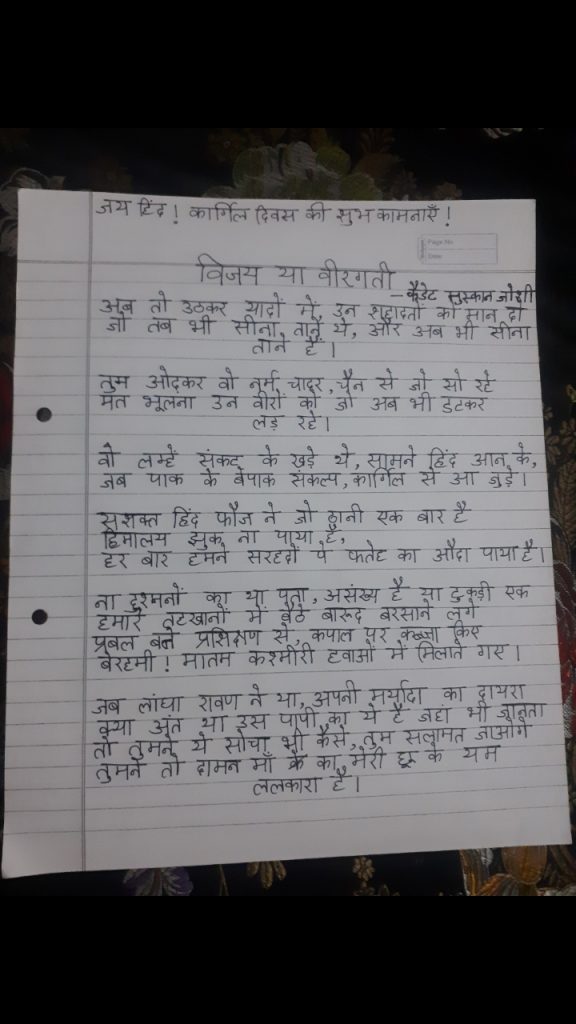 जय हिंद! कार्गिल दिवस की शुभ कामनाएँ!
Page No
Date
विजय या वीरगती
- कैडेट मुस्कान जोशी
अब तो उठकर यादों में, उन शहादतों को मान दो
जो तब भी सीना ताने थे, और अब भी सीना
ताने हैं।
तुम ओढ़कर वो नर्म चादर, चैन से जो सो रहे
मत भूलना उन वीरों को जो अब भी डटकर
लड़ रहे।
वो लम्हें संकट के खड़े थे, सामने हिंद आन के,
जब पाक के बेपाक संकल्प, कार्गिल से आ जुड़े।
सशक्त हिंद फौज ने जो ठानी एक बार है
हिमालय झुक ना पाया है,
हर बार हमने सरहदों पे फतेह का औदा पाया है।
ना दुश्मनों का था पता, असंख्य है या टुकड़ी एक
हमारे तटखानों में बैठे बारूद बरसाने लगे
प्रबल बने प्रशिक्षण से, कपाल पर कब्ज़ा किए
बेरहमी! मातम कश्मीरी हवाओं में मिलाते गए।
जब लांघा रावण ने था, अपनी मर्यादा का दायरा
क्या अंत था उस पापी का ये है जहां भी जानता
तो तुमने ये सोचा भी कैसे, तुम सलामत जाओगे
तुमने तो दामन माँ का, मेरी छू के यम
ललकारा है।